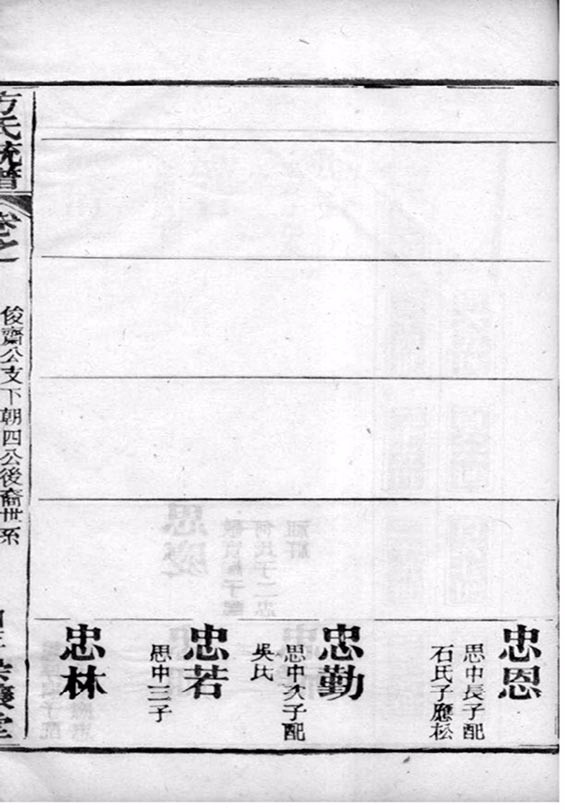 忠恩
思中長子配
石氏子應松
忠勤
思中次子配
吳氏
忠若
思中三子
忠林
方氏統譜
卷之
俊齋公支下朝四公後裔世系